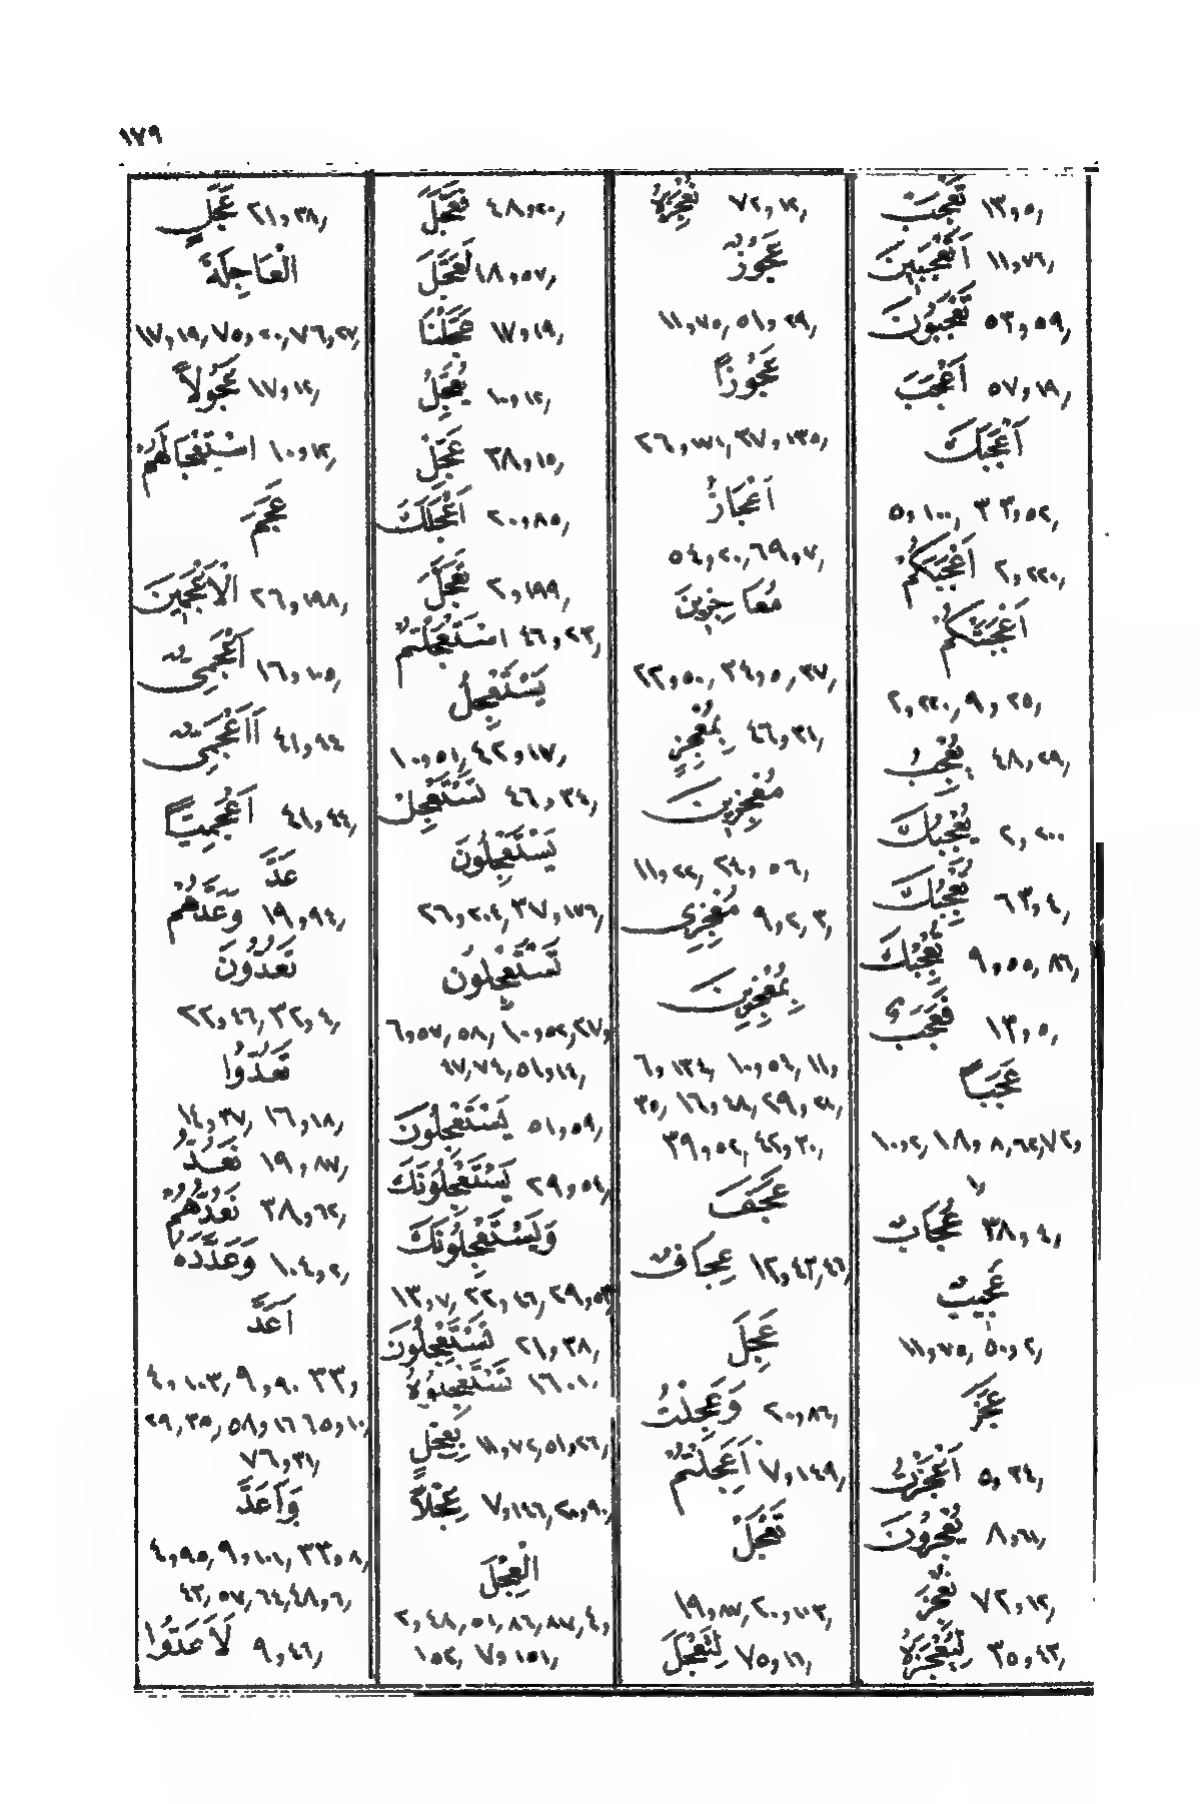 ١٧٩
تَعْجَبْ ١٣,٥,
اَتَعْجَبِينَ ١١,٧٦,
تَعْجَبُونَ ٥٣,٥٩,
اَعْجَبَ ٥٧,١٩,
اَعْجَبَكَ
٥,١٠٠, ٣٣,٥٢,
اَعْجَبَكُمْ ٢,٢٢٠,
اَعْجَبَتْكُمْ
٢,٢٢٠, ٩,٢٥,
يُعْجِبُ ٤٨,٢٩,
يُعْجِبُكَ ٢,٢٠٠
تُعْجِبُكَ ٦٣,٤,
تُعْجِبْكَ ٩,٥٥,٨٦,
فَعَجَبٌ ١٣,٥,
عَجَبًا
١٠,٢, ١٨,٨,٦٢,٧٢,
٧١
عُجَابٌ ٣٨,٤,
عَجِيبٌ
١١,٧٥, ٥٠,٢,
عَجَزَ
اَعَجَزْتُ ٥,٣٤,
يُعْجِزُونَ ٨,٦١,
نُعْجِزَ ٧٢,١٢,
لِيُعْجِزَهُ ٣٥,٤٣,
نُعْجِزَهُ ٧٢,١٢,
عَجُوزٌ
١١,٧٥, ٥١,٢٩,
عَجُوزًا
٢٦,١٧١, ٣٧,١٣٥,
اَعْجَازُ
٥٤,٢٠, ٦٩,٧,
مُعَاجِزِينَ
٢٢,٥٠, ٣٤,٥, ٣٧,
بِمُعْجِزٍ ٤٦,٣١,
مُعْجِزِينَ
١١,٢٢, ٢٤, ٥٦,
مُعْجِزِى ٩,٢, ٣,
بِمُعْجِزِينَ
٦,١٣٤, ١٠,٥٤, ١١,
٣٥, ١٦,٤٨, ٢٩,٢٨,
٣٩,٥٢, ٤٢,٣٠,
عَجَفَ
عِجَافٌ ١٢,٤٣,٤٦,
عَجَلَ
وَعَجِلْتُ ٢٠,٨٤,
اَعَجِلْتُمْ ٧,١٤٩,
تَعْجَلْ
١٩,٨٧, ٢٠,١٠٣,
لِتَعْجَلَ ٧٥,١٦,
فَعَجَّلَ ٤٨,٢٠,
لَعَجَّلَ ١٨,٥٧,
عَجَّلْنَا ١٧,١٩,
يُعَجِّلُ ١٠,١٢,
عَجِّلْ ٣٨,١٥,
اَعْجَلَكَ ٢٠,٨٥,
تَعَجَّلَ ٢,١٩٩,
اسْتَعْجَلْتُمْ ٤٦,٢٣,
يَسْتَعْجِلُ
١٠,٥١, ٤٢,١٧,
تَسْتَعْجِلْ ٤٦,٣٤,
يَسْتَعْجِلُونَ
٢٦,٢٠٤, ٣٧,١٧٦,
تَسْتَعْجِلُونَ
٦,٥٧,٥٨, ١٠,٥٢,٢٧,
٧٢,٧٤, ٥١,١٤,
يَسْتَعْجِلُونَ ٥١,٥٩,
يَسْتَعْجِلُونَكَ ٢٩,٥٤,
وَيَسْتَعْجِلُونَكَ
١٣,٧, ٢٢,٤٦, ٢٩,٥٣
تَسْتَعْجِلُونَ ٢١,٣٨,
تَسْتَعْجِلُوهُ ١٦,١,
بِعِجْلٍ ١١,٧٢,٥١,٢٦,
عِجْلًا ٧,١٤٦,٢٠,٩٠,
الْعِجْلَ
٢,٤٨,٥١,٨٦,٨٧, ٤,
١٥٢, ٧,١٥١,
عَجَلٍ ٢١,٣٨,
الْعَاجِلَةَ
١٧,١٩, ٧٥,٢٠, ٧٦,٢٧,
عَجُولاً ١٧,١٢,
اسْتِعْجَالَهُمْ ١٠,١٢,
عَجَمَ
الْاَعْجَمِينَ ٢٦,١٩٨,
اَعْجَمِىٌّ ١٦,١٠٥,
اَاَعْجَمِىٌّ ٤١,٤٤
اَعْجَمِيًّا ٤١,٤٤,
عَدَّ
وَعَدَّهُمْ ١٩,٩٤,
تَعُدُّونَ
٢٢,٤٦, ٣٢,٤,
تَعُدُّوا
١٤,٣٧, ١٦,١٨,
نَعُدُّ ١٩,٨٧,
نَعُدُّهُمْ ٣٨,٦٢,
وَعَدَّدَهُ ١٠٤,٢,
اَعَدَّ
٤,١٠٣, ٩,٩٠, ٣٣,
٢٩,٣٥, ٥٨,١٦ ٦٥,١٠,
٧٦,٣١,
وَاَعَدَّ
٤,٩٥, ٩,١٠١, ٣٣,٨,
٤٣,٥٧,٦٤, ٤٨,٦,
لَاَعَدُّوا ٩,٤٦,